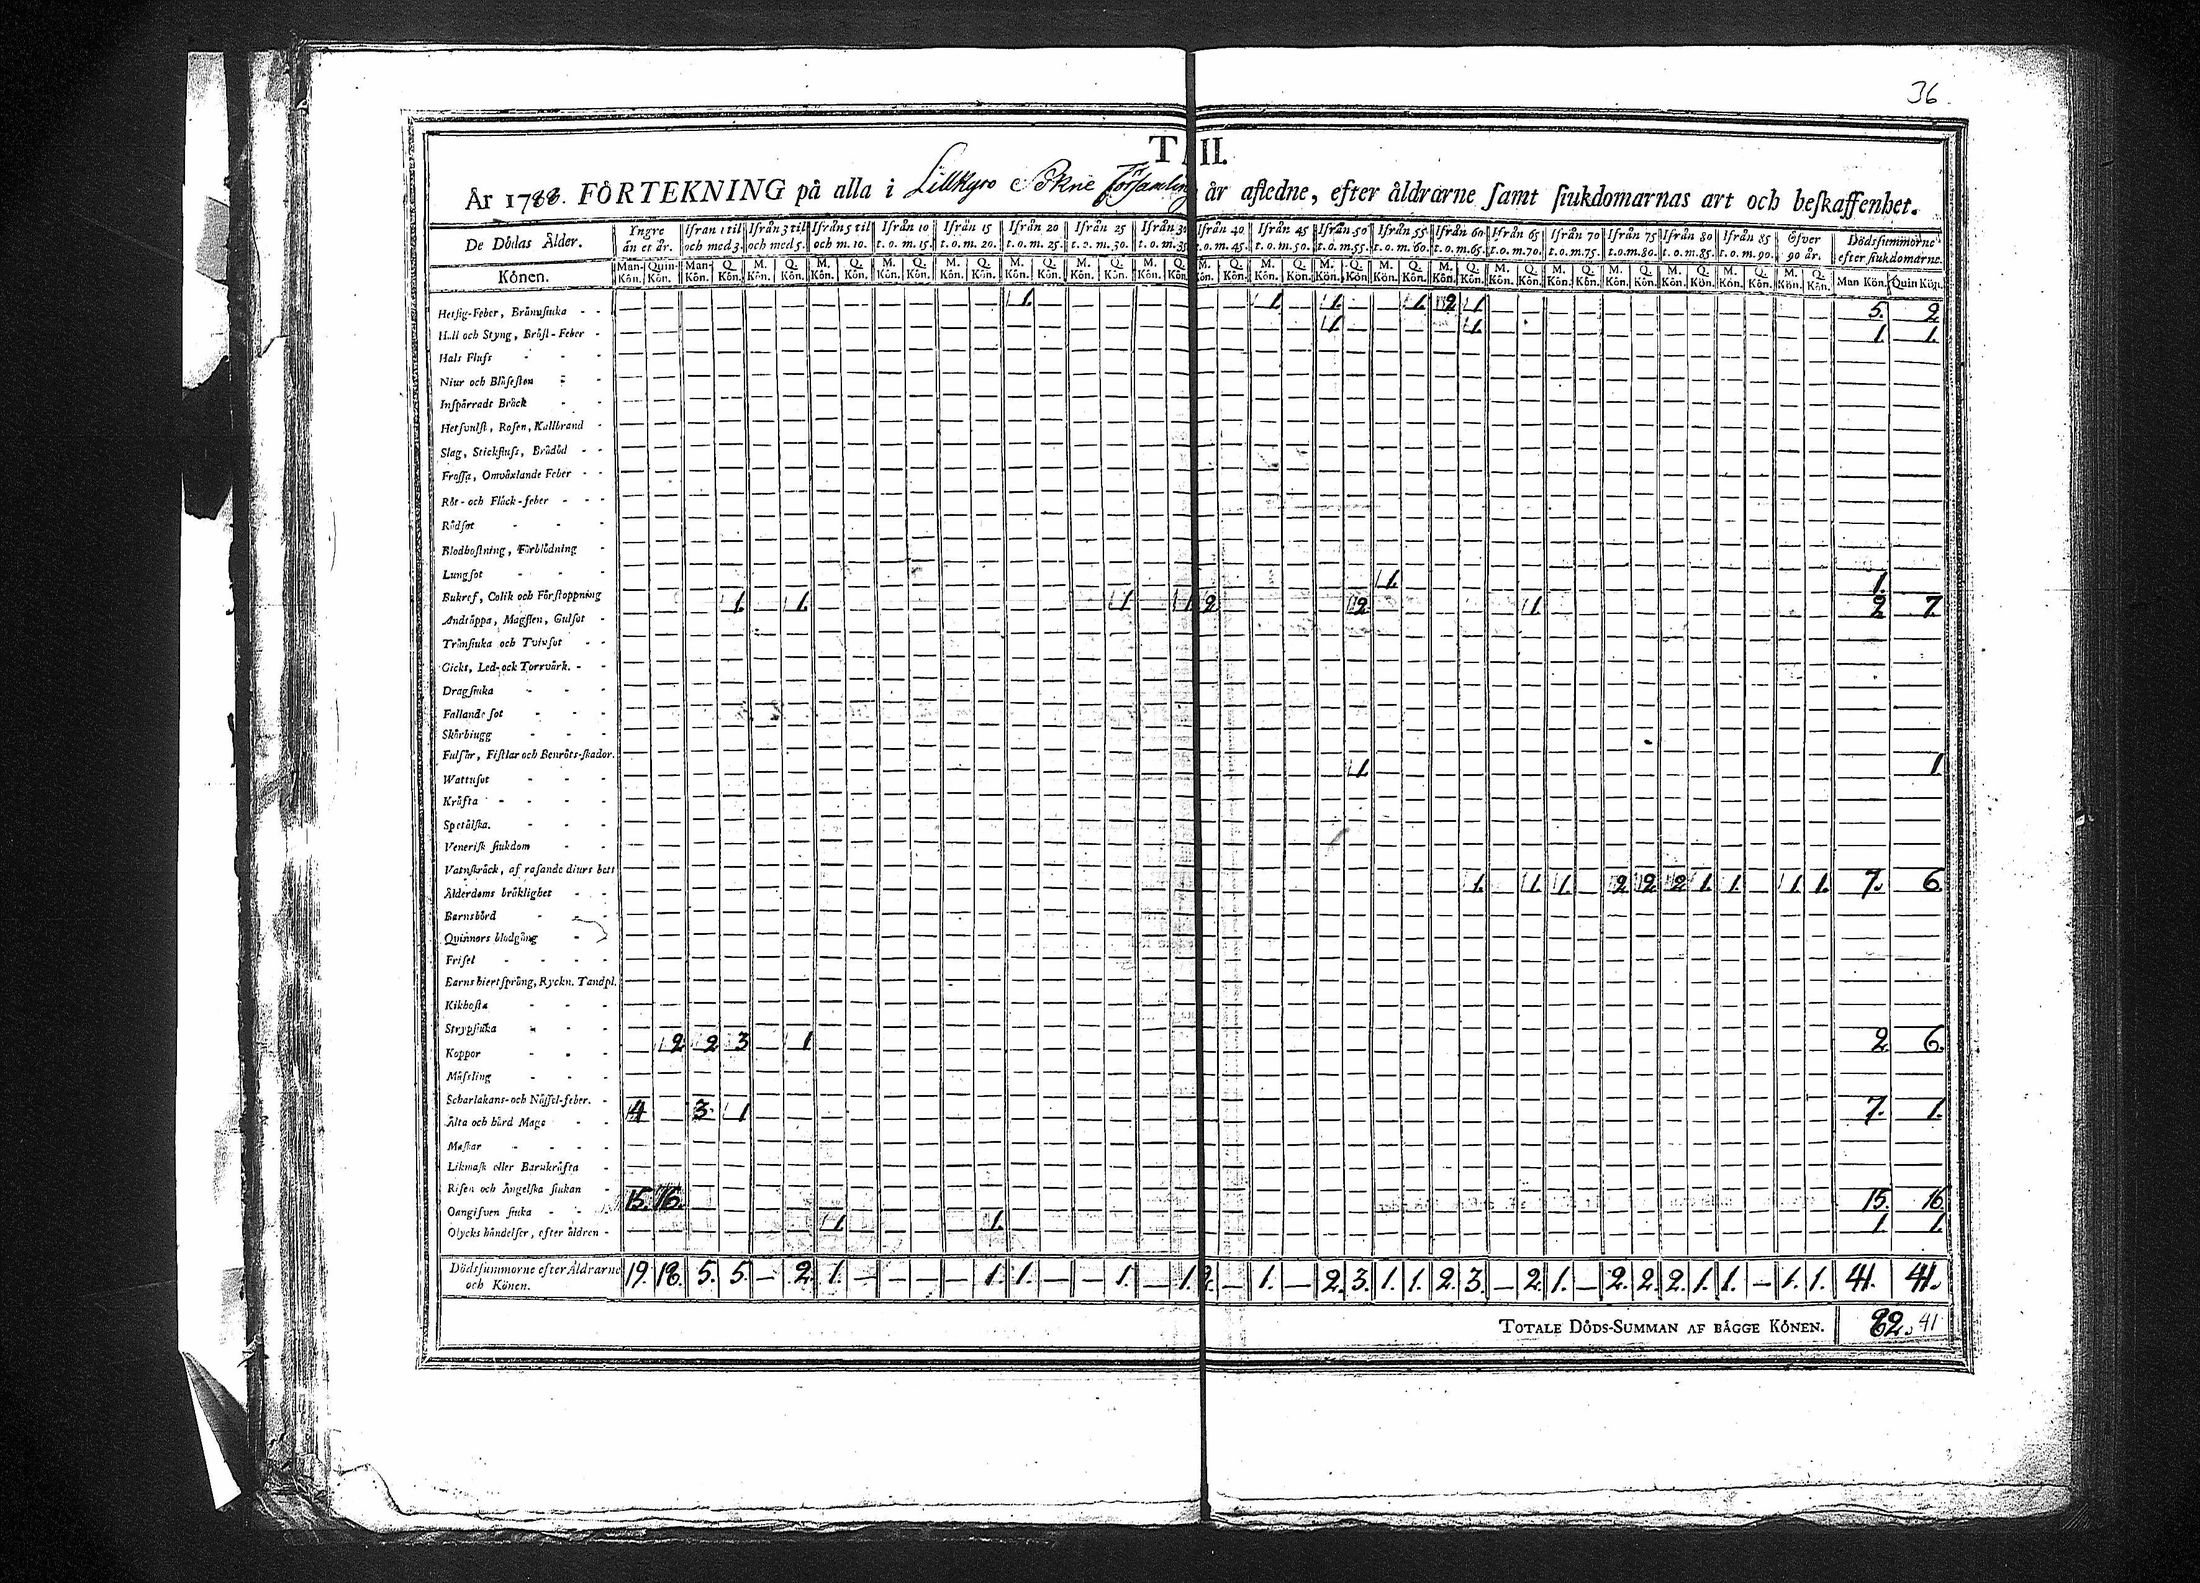 36.
T II.
År 1788. FÖRTEKNING på alla i Lillkyro Sokne Församling år afledne, efter åldrarne samt siukdomarnas art och beskaffenhet.
De Dödas Ålder. Yngre än et år. Ifrån 1 til och med 3. Ifrån 3 til och med 5. Ifrån 5 til och m. 10. Ifrån 10 t. o. m. 15. Ifrån 15 t. o. m. 20. Ifrån 20 t. o. m. 25. Ifrån 25 t. o. m. 30. Ifrån 30 t. o. m. 35 Ifrån 40 t. o. m. 45. Ifrån 45 t. o. m. 50. Ifrån 50 t. o. m. 55. Ifrån 55 t. o. m. 60. Ifrån 60 t. o. m. 65. Ifrån 65 t. o. m. 70. Ifrån 70 t. o. m. 75. Ifrån 75 t. o. m. 80. Ifrån 80 t. o. m. 85. Ifrån 85 t. o. m. 90. Öfver 90 år. Dödssummorne efter siukdomarne.
Könen. Man-Kön. Quin-Kön. Man-Kön. Q. Kön. M. Kön. Q. Kön. M. Kön. Q. Kön. M. Kön. Q. Kön. M. Kön. Q. Kön. M. Kön. Q. Kön. M. Kön. Q. Kön. M. Kön. Q. Kön. M. Kön. Q. Kön. M. Kön. Q. Kön. M. Kön. Q. Kön. M. Kön. Q. Kön. M. Kön. Q. Kön. M. Kön. Q. Kön. M. Kön. Q. Kön. M. Kön. Q. Kön. M. Kön. Q. Kön. M. Kön. Q. Kön. M. Kön. Q. Kön. Man Kön. Quin Kön.
Hetsig-Feber, Brännsiuka - - 1. 1. 1. 1. 2 1. 5. 2
Håll och Styng, Bröst-Feber - 1. 1. 1. 1.
Hals Fluss - - -
Niur och Blåsesten - -
Inspärradt Bråck - -
Hetsvulst, Rosen, Kallbrand -
Slag, Stickfluss, Brådöd - -
Frossa, Omväxlande Feber - -
Röt- och Fläck-feber - - -
Rödsot - - -
Blodhostning, Förblödning -
Lungsot - - - 1. 1.
Bukref, Colik och Förstoppning 1. 1. 1. 1. 2 2 1. 2 7.
Andtäppa, Magsten, Gulsot -
Trånsiuka och Tvinsot - -
Gickt, Led- ock Torrvärk. - -
Dragsiuka - - -
Fallande sot - - -
Skörbiugg - - -
Fulsår, Fistlar och Benröts-skador.
Wattusot - - - 1. 1
Kräfta - - - -
Spetälska. - - -
Venerisk siukdom - -
Vatnskräck, af rasande diurs bett
Ålderdoms bräklighet - - 1. 1. 1. 2 2 2 1. 1. 1. 1. 7. 6.
Barnsbörd - - -
Quinnors blodgång - -
Frisel - - - -
Barns hiertsprång, Ryckn. Tandpl.
Kikhosta - - -
Strypsiuka - - -
Koppor - - - 2 2 3 1 2 6.
Mässling - - -
Scharlakans- och Nässel-feber. -
Älta och hård Mage - - 4 3. 1 7. 1.
Maskar - - - -
Likmask eller Barnkräfta -
Risen och Ängelska siukan -
Oangifven siuka - - - 15. 16. 15. 16
Olycks händelser, efter åldren - 1. 1. 1. 1.
Dödssummorne efter Åldrarne och Könen. 19. 18. 5. 5. — 2. 1. — — — — 1. 1. — — 1. — 1. 2. — 1. — 2. 3. 1. 1. 2. 3. — 2. 1. — 2. 2. 2. 1. 1. — 1. 1. 41. 41.
TOTALE DÖDS-SUMMAN AF BÄGGE KÖNEN. 82. 41